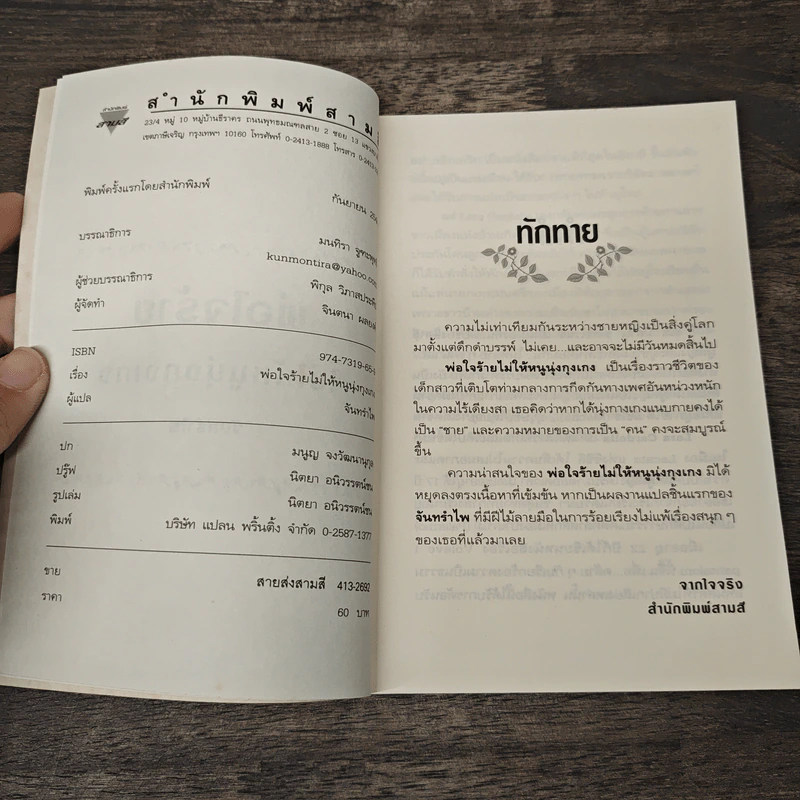 สำนักพิมพ์
สามสี
สำนักพิมพ์สามสี
23/4 หมู่ 10 หมู่บ้านธีราคร ถนนพุทธมณฑลสาย 2 ซอย 13
เขตภาษีเจริญ กรุงเทพฯ 10160 โทรศัพท์ 0-2413-1888 โทรสาร
พิมพ์ครั้งแรกโดยสำนักพิมพ์
กันยายน
บรรณาธิการ
มนทิรา
kunmontira@yahoo.com
ผู้ช่วยบรรณาธิการ
พิกุล
ผู้จัดทำ
จินตนา
ISBN
974-7319-65-
เรื่อง
พ่อใจร้ายไม่ให้หนูนุ่งกุงเกง
ผู้แปล
จันทรำไพ
ปก
มนูญ จงวัฒนานุกูล
ปรู๊ฟ
นิตยา อนิวรรตน์ชน
รูปเล่ม
นิตยา อนิวรรตน์ชน
พิมพ์
บริษัท แปลน พริ้นติ้ง จำกัด 0-2587-1377
ขาย
สายส่งสามสี 413-2692
ราคา
60 บาท
ทักทาย
ความไม่เท่าเทียมกันระหว่างชายหญิงเป็นสิ่งคู่โลก
มาตั้งแต่ดึกดำบรรพ์ ไม่เคย...และอาจจะไม่มีวันหมดสิ้นไป
พ่อใจร้ายไม่ให้หนูนุ่งกุงเกง เป็นเรื่องราวชีวิตของ
เด็กสาวที่เติบโตท่ามกลางการกีดกันทางเพศอันหน่วงหนัก
ในความไร้เดียงสา เธอคิดว่าหากได้นุ่งกางเกงแนบกายคงได้
เป็น "ชาย" และความหมายของการเป็น "คน" คงจะสมบูรณ์
ขึ้น
ความน่าสนใจของ พ่อใจร้ายไม่ให้หนูนุ่งกุงเกง มิได้
หยุดลงตรงเนื้อหาที่เข้มข้น หากเป็นผลงานแปลชิ้นแรกของ
จันทรำไพ ที่มีฝีไม้ลายมือในการร้อยเรียงไม่แพ้เรื่องสนุก ๆ
ของเธอที่แล้วมาเลย
จากใจจริง
สำนักพิมพ์สามสี